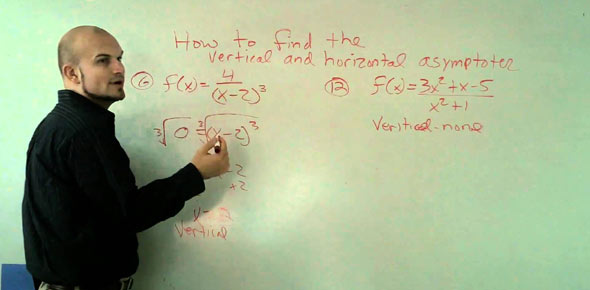 How to find the
vertical and horizontal asymptotes
⑥ f(x) = 4/(x-2)³
³√0 = ³√(x-2)³
-2
+2
= 2
Vertical
⑫ f(x) = 3x²+x-5/x²+1
Veritical-none